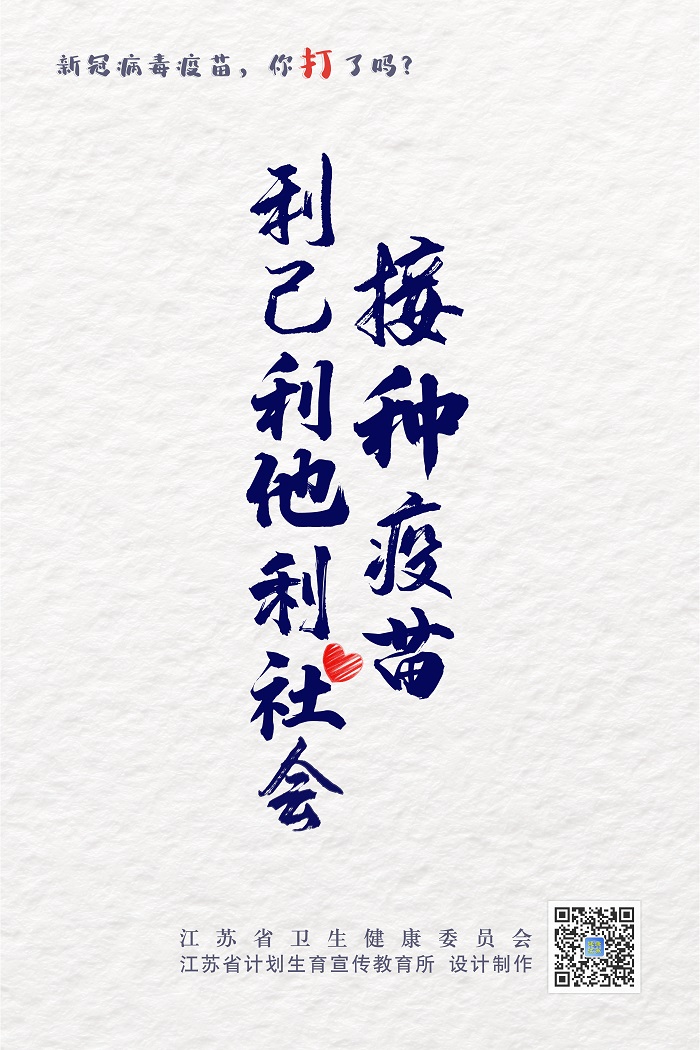 新冠病毒疫苗，你打了吗？
接种疫苗
利己利他利社会
江苏省卫生健康委员会
江苏省计划生育宣传教育所 设计制作